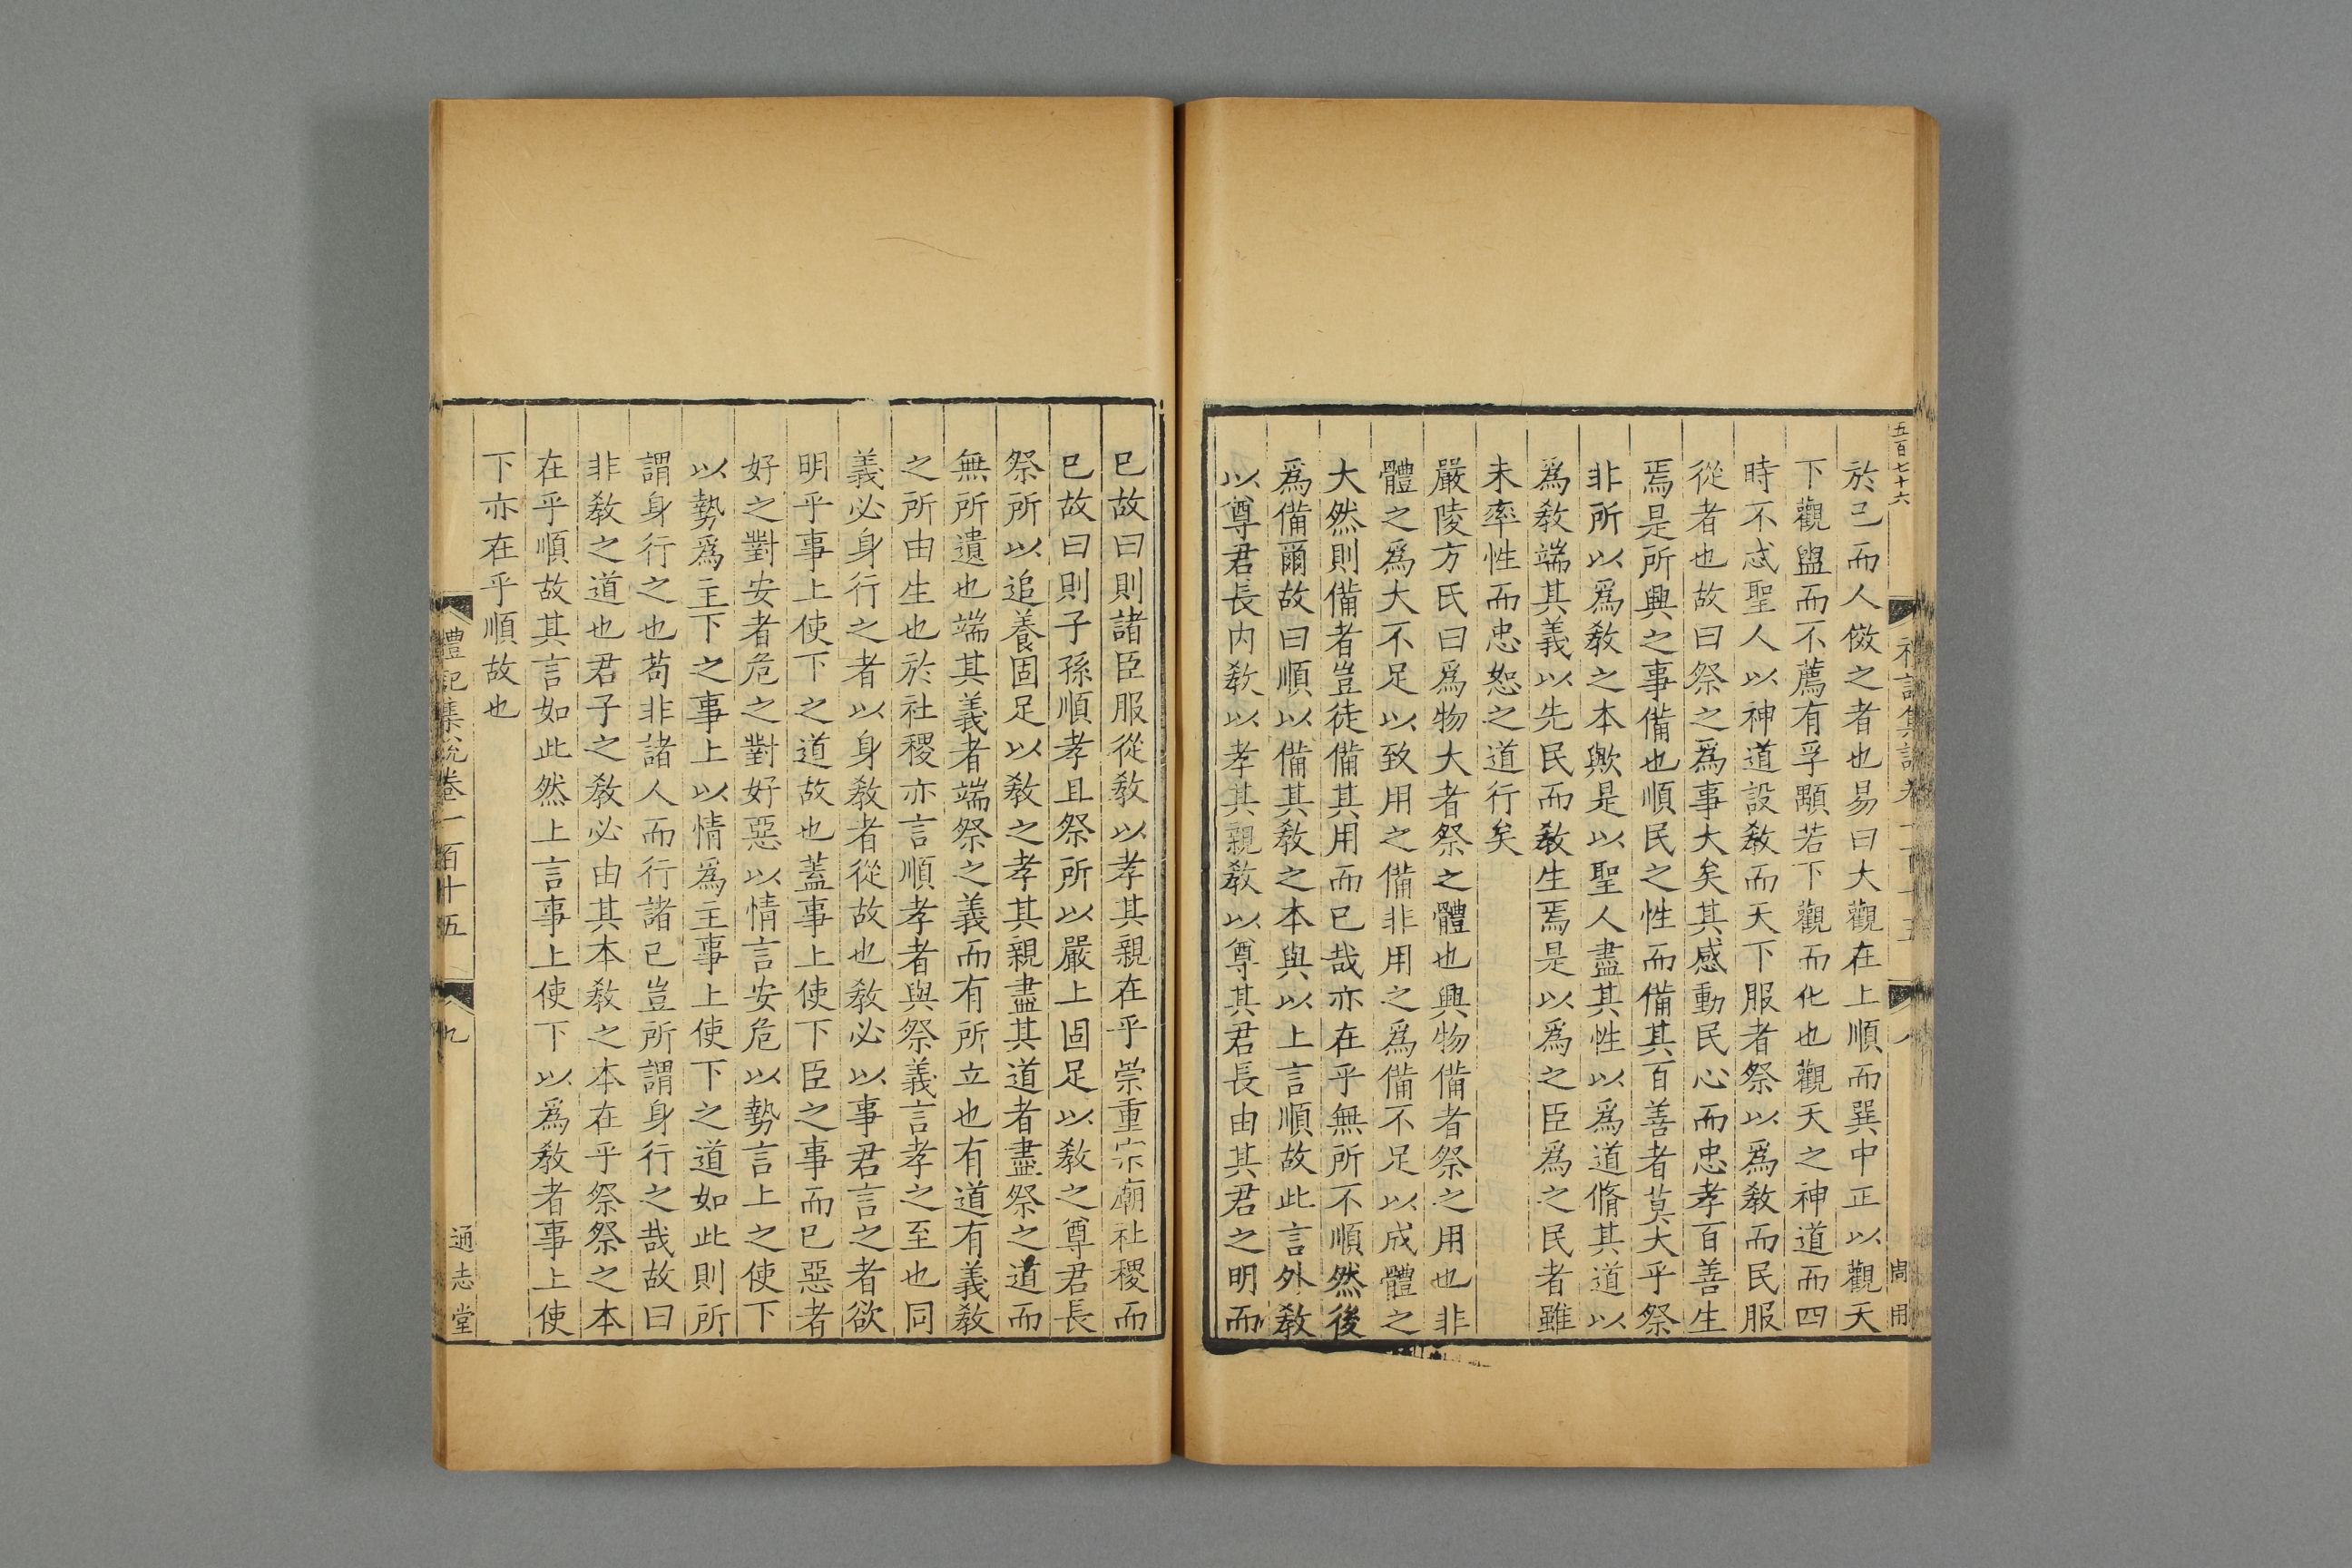 五百七十六
於己而人傚之者也易曰大觀在上順而巽中正以觀天
下觀盥而不薦有孚顒若下觀而化也觀天之神道而四
時不忒聖人以神道設敎而天下服者祭以爲敎而民服
從者也故曰祭之爲事大矣其感動民心而忠孝百善生
焉是所興之事備也順民之性而備其百善者莫大乎祭
非所以爲敎之本歟是以聖人盡其性以爲道脩其道以
爲敎端其義以先民而敎生焉是以爲之臣爲之民者雖
未率性而忠恕之道行矣
嚴陵方氏曰爲物大者祭之體也興物備者祭之用也非
體之爲大不足以致用之備非用之爲備不足以成體之
大然則備者豈徒備其用而已哉亦在乎無所不順然後
爲備爾故曰順以備其敎之本與以上言順故此言外敎
以尊君長内敎以孝其親敎以尊其君長由其君之明而
周用
已故曰則諸臣服從敎以孝其親在乎崇重宗廟社稷而
已故曰則子孫順孝且祭所以嚴上固足以敎之尊君長
祭所以追養固足以敎之孝其親盡其道者盡祭之道而
無所遺也端其義者端祭之義而有所立也有道有義敎
之所由生也於社稷亦言順孝者與祭義言孝之至也同
義必身行之者以身敎者從故也敎必以事君言之者欲
明乎事上使下之道故也蓋事上使下臣之事而已惡者
好之對安者危之對好惡以情言安危以勢言上之使下
以勢爲主下之事上以情爲主事上使下之道如此則所
謂身行之也苟非諸人而行諸已豈所謂身行之哉故曰
非敎之道也君子之敎必由其本敎之本在乎祭祭之本
在乎順故其言如此然上言事上使下以爲敎者事上使
下亦在乎順故也
禮記集說卷一百十五
九
通志堂